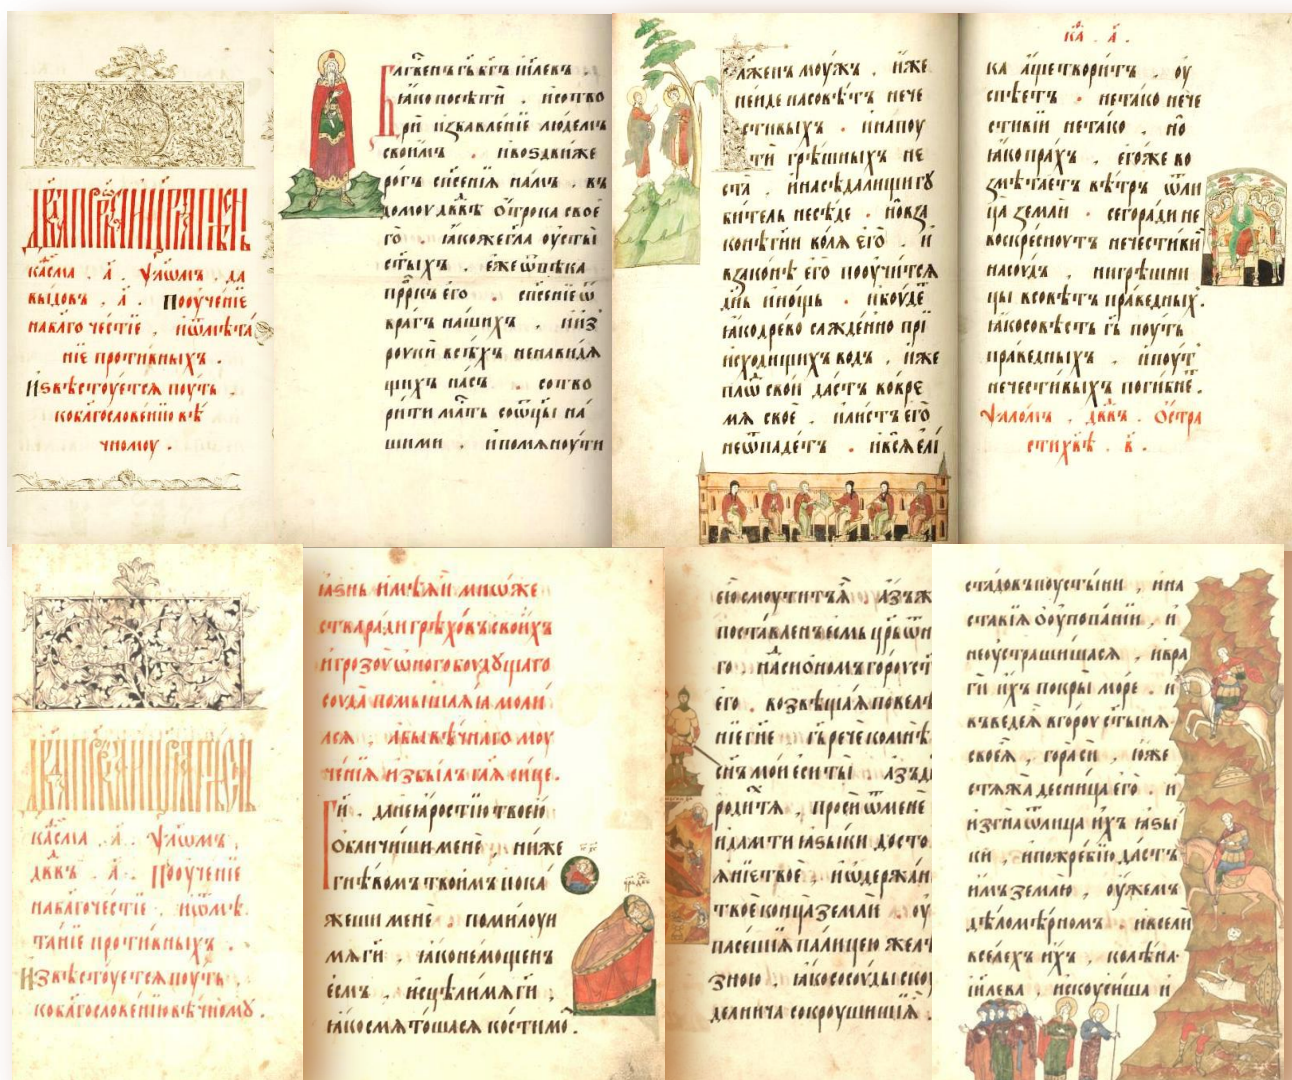 каѳсма . а҃ . Ѱало́мъ . да
выдовъ . а҃ . Пооученїе
набл҃го че́стїе . иѿмѣта́
нїе проти́вныхъ .
Извѣстоуется поуть .
кобл҃гослове́нїю вѣ́
чномоу .
Бл҃гве́нъ гь бг҃ъ ії҃левъ
ꙗко посѣти . исотво
ри избавле́нїе лю́демъ
свои́мъ . ивоздви́же
ро́гъ сп҃се́нїѧ на́мъ . въ
домоу дв҃вѣ О́трока своѐ
го̀ . ꙗкожегл҃а оусты̀
ст҃ы́хъ . е́жеѿвѣка
прⷪ҇ркъ его̀ . сп҃се́нїеѿ
вра́гъ на́шихъ . ииз
роукѝ всѣ́хъ ненави́дѧ
щихъ на́съ . сотво
ри́ти мл҃ть соѿцы̀ на́
шими . ипомѧноу́ти
Блаже́нъ моу́жъ . и́же
неи́де насовѣ́тъ нече
сти́выхъ . инапоу
тѝ грѣ́шныхъ не
ста̀ . инасѣда́лищи гу
би́тель несѣ́де . новза
ко́нѣ гнѝ во́лѧ его̀ . и
взако́нѣ его̀ пооучи́тсѧ
дн҃ь ино́щь . ибоу́де
ꙗкодре́во сажде́нно прѝ
исхо́дищихъ во́дъ . и́же
пло́дъ сво́й да́стъ вовре́
мѧ своѐ . или́стъ его̀
неѿпаде́тъ . ивсѧ̀ елѝ
ка а́щетвори́тъ . оу
спѣ́етъ . нета́ко нече
сти́вїи нета́ко . но̀
ꙗкопра́хъ . его́же во
змѣта́етъ вѣ́тръ ѿли
ца̀ землѝ . сегора́ди не
воскре́сноутъ нечести́вїи
насоу́дъ . нигрѣ́шни
цы всовѣ́тъ пра́ведныхъ .
ꙗкосвѣ́сть гь поу́ть
пра́ведныхъ . ипоу́т
нечести́выхъ поги́бне .
Ѱало́мъ . дв҃въ . О́стра
стихвѣ̀ . в҃ .
каѳсма . а҃ . Ѱало́мъ .
дв҃въ . а҃ . Пооуче́нїе
набл҃гоче́стїе . иѿмѣ
та́нїе проти́вныхъ .
Извѣстоу́етсѧ поу́ть .
кобл҃гослове́нїю вѣ́чномꙋ .
ꙗзнь имѣ́ѧй мно́же
ства ра́ди грѣхо́въ свои́хъ
игрозо́ю о́ного боу́дꙋщаго
соуда̀ помышлѧ́ѧ моли́
лсѧ . абы вѣ́чнаго моу
че́нїѧ избы́лъ гл҃ѧ си́це .
Гй . дане ꙗ́ростїю твое́ю
обличи́ши менѐ . ниже
гнѣ́вомъ твои́мъ пока
же́ши менѐ . поми́лоуи
мѧ гй . ꙗконе́мощенъ
е́смъ . исцѣлѝ мѧ гй .
ꙗко смѧто́шасѧ ко́сти моѧ̀ .
е́ю смоути́тъ ѧ̀ . а́зъ ж
поста́вленъ е́смь цр҃ь ѿн
го̀ . насио́номъ горо́ю ст҃
его̀ . возвѣща́ѧ повелѣ́
нїе гн҃е . гь речѐ ко мнѣ̀
сн҃ъ мо́й есѝ ты̀ . а́зъ дн
роди́х тѧ̀ . просѝ ѿменѐ
ида́мъ ти ꙗзы́ки досто
ѧ́нїе твоѐ . иѡдержа́н
твоѐ конца̀ землѝ . оу
пасе́ши ѧ̀ па́лицею желѣ́
зною . ꙗко сосоу́ды скоу
де́лнича сокроуши́ши ѧ̀ .
ста́довъ поусты́ни . ина
ста́вїѧ ѡ оупова́нїи . и
неоустраши́шасѧ . ивра
гѝ и́хъ покры̀ мо́ре . и
въведѐ ѧ̀ вго́роу ст҃ы́нѧ
своеѧ̀ . гора̀ сѝ . ю́же
стѧжа̀ десни́ца его̀ . и
изгна̀ ѿлица̀ и́хъ ꙗзы́
ки . ипожре́бїю да́стъ
и́мъ зе́млю . оу́жемъ
дѣломѣ́рномъ . ивселѝ
вселе́хъ и́хъ . колѣ́на
ії҃лева . искоуси́ша и